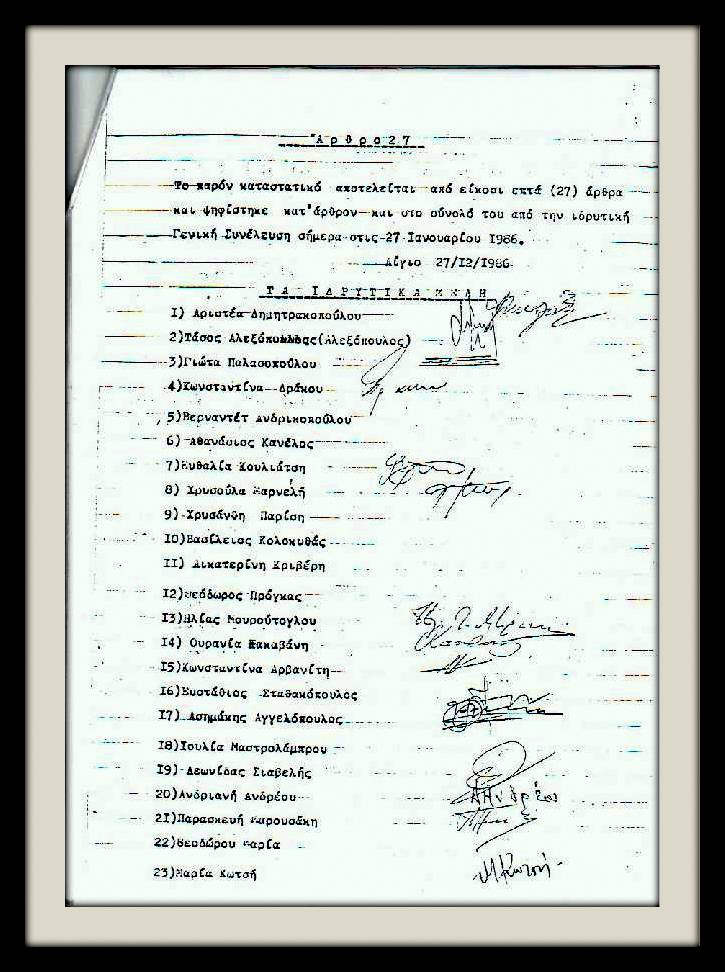 Άρθρο 27
Το παρόν καταστατικό αποτελείται από είκοσι επτά (27) άρθρα
και ψηφίστηκε κατ'άρθρον και στο σύνολό του από την ιδρυτική
Γενική Συνέλευση σήμερα στις 27 Ιανουαρίου 1986.
Αίγιο 27/12/1986
ΤΑ ΙΔΡΥΤΙΚΑ ΜΕΛΗ
1) Αριστέα Δημητρακοπούλου
2)Τάσος (Αλεξόπουλος)
3)Γιώτα Παλασοπούλου
4)Κωνσταντίνα Δράκου
5)Βερναντέτ Ανδρικοπούλου
6) Αθανάσιος Κανέλος
7)Ευθαλία Κουλιάτση
8) Χρυσούλα Βαρνελή
9) Χρυσάνθη Παρίση
10)Βασίλειος Κολοκυθάς
11) Αικατερίνη Κριβέρη
12)Θεόδωρος Πρόγκας
13)Ηλίας Μουρούτογλου
14) Ουρανία
15)Κωνσταντίνα Αρβανίτη
16)Ευστάθιος Σταθακόπουλος
17) Ασημάκης Αγγελόπουλος
18)Ιουλία Μαστρολάμπρου
19) Λεωνίδας Σιαβελής
20)Ανδριανή Ανδρέου
21)Παρασκευή Μαρουσάκη
22)Θεοδώρου Μαρία
23)Μαρία Κωτσή